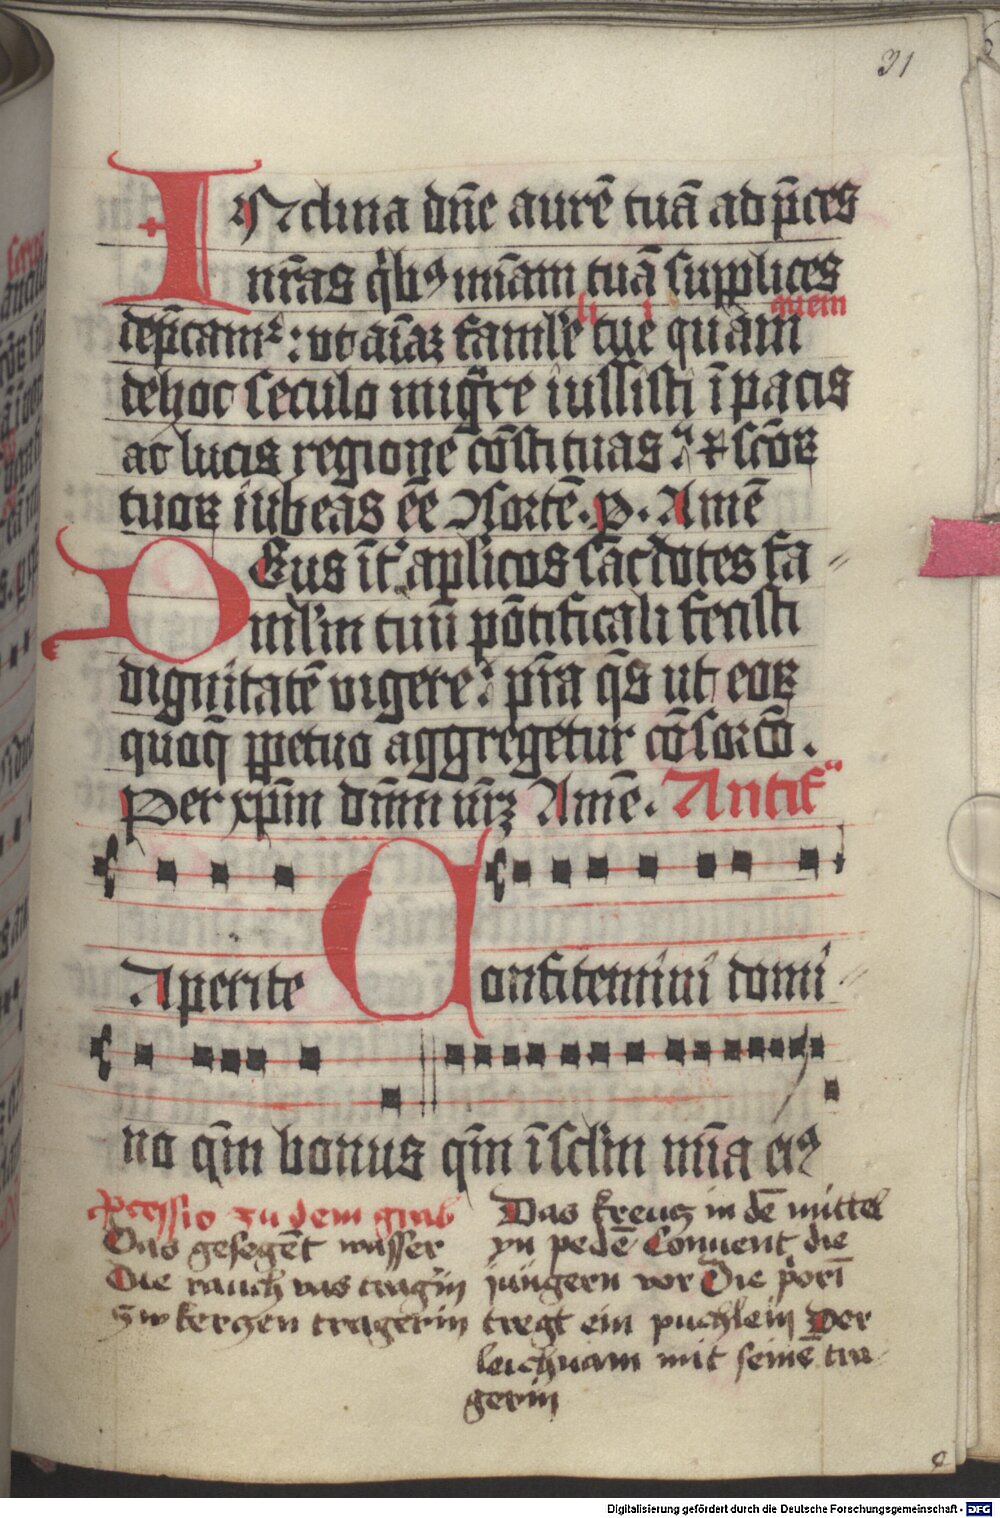 31
INclina dn̄e aurē tuā ad p̄ces
nr̄as qͥbꝰ mīam tuā supplices
dep̄camᷣ: ut aīaꝫ famule tue quam
li i quem
de hoc seculo migᷓre iussisti ī pacis
ac lucis regione cōstituas: ⁊ scōꝝ
tuoꝝ iubeas ēē ꝯsortē. p. Amē
DEus īt᷑ aplicos sac̄dotes fa
mlm̄ tuū pōtificali fecisti
dignitatē vigere: pr̄a qs̄ ut eoꝝ
quoqꝫ ꝑpetuo aggregetur cōsorcō.
Per xp̄m dnm̄ nr̄ꝫ Amē. Antifᵃ
Aperite Confitemini domi
no qm̄ bonus qm̄ ī sclm̄ mīa eiꝰ
ꝓcessio zu dem grab
Das gesegēt wasser
Die rauch vas tragīn
zw kerczen tragerin
Das kreucz in dē mittel
yn pedē Conuent die
jungern vor Die p̄orī
tregt ein puchlein Der
leichnam mit seinē tra
gerin
Digitalisierung gefördert durch die Deutsche Forschungsgemeinschaft - DFG